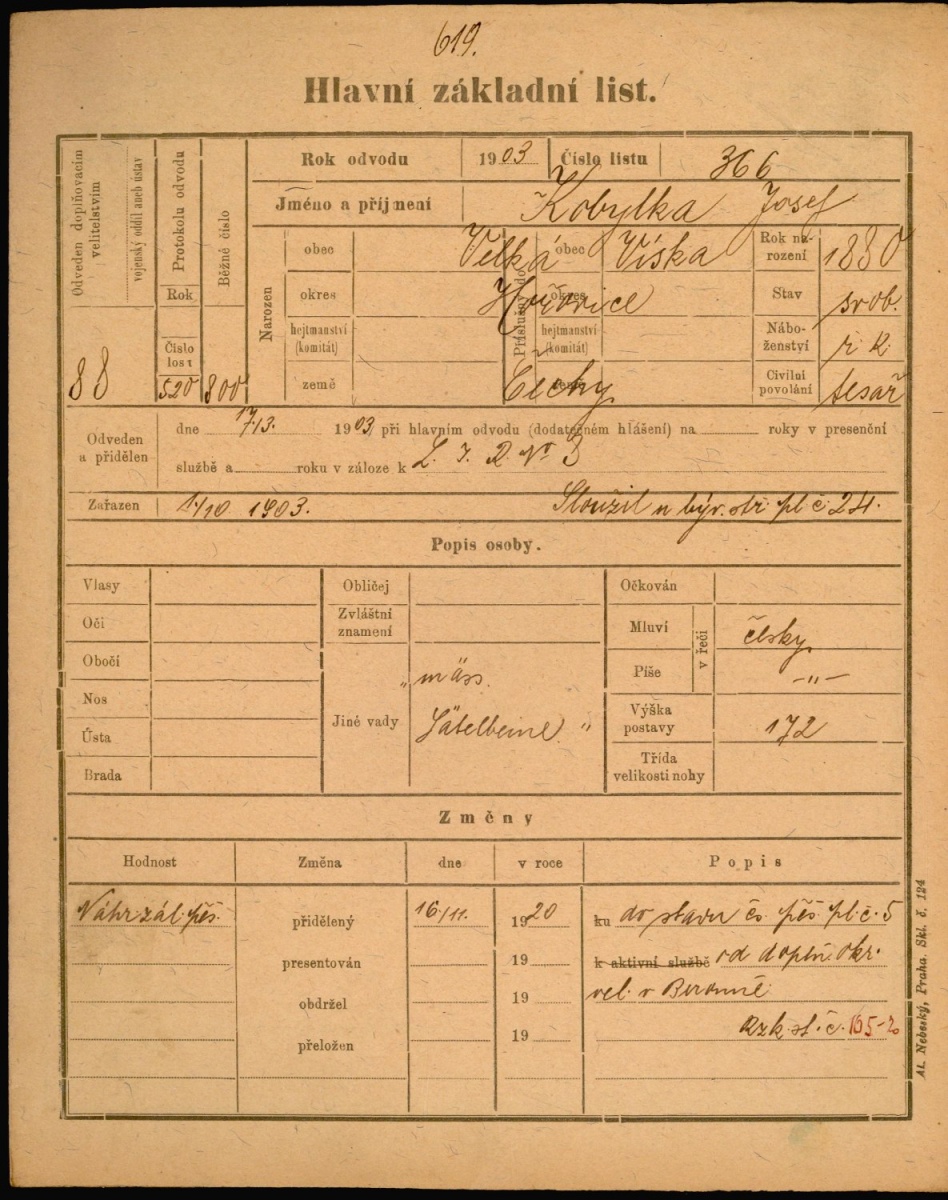 619.
Hlavní základní list.
Odveden doplňovacím velitelstvím
vojenský oddíl aneb ústav
88
Protokolu odvodu
Rok
Číslo losu
520
Běžné číslo
800
Rok odvodu 1903 Číslo listu 366
Jméno a příjmení Kobylka Josef
Narozen
obec Velká Víska
okres Hořovice
hejtmanství (komitát)
země Čechy
Příslušný do
obec
okres
hejtmanství (komitát)
země
Rok narození 1880
Stav svob.
Náboženství ř. k.
Civilní povolání tesař
Odveden a přidělen
dne 17./3. 1903 při hlavním odvodu (dodatečném hlášení) na roky v presenční
službě a roku v záloze k L. I. R. No
Zařazen 1./10. 1903. Sloužil u býv. stř. pl. č. 24.
Popis osoby.
Vlasy
Oči
Obočí
Nos
Ústa
Brada
Obličej
Zvláštní znamení
Jiné vady „mäss. Säbelbeine."
Očkován
Mluví
Píše
v řeči
česky
-„-
Výška postavy 172
Třída velikosti nohy
Změny
Hodnost Změna dne v roce Popis
Náhr. zál. pěš. přidělený 16/11. 1920 ku do stavu čs. pěš. pl. č. 5
presentován 19 k aktivní službě od doplň. okr.
obdržel 19 vel. v Berouně
přeložen 19 Rzk. st. č. 165-20
Al. Nebeský, Praha. Skl. č. 124